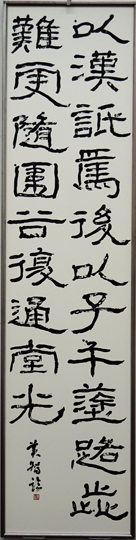 以漢詆焉後以子午塗路歰
難更隨圍谷復通堂光